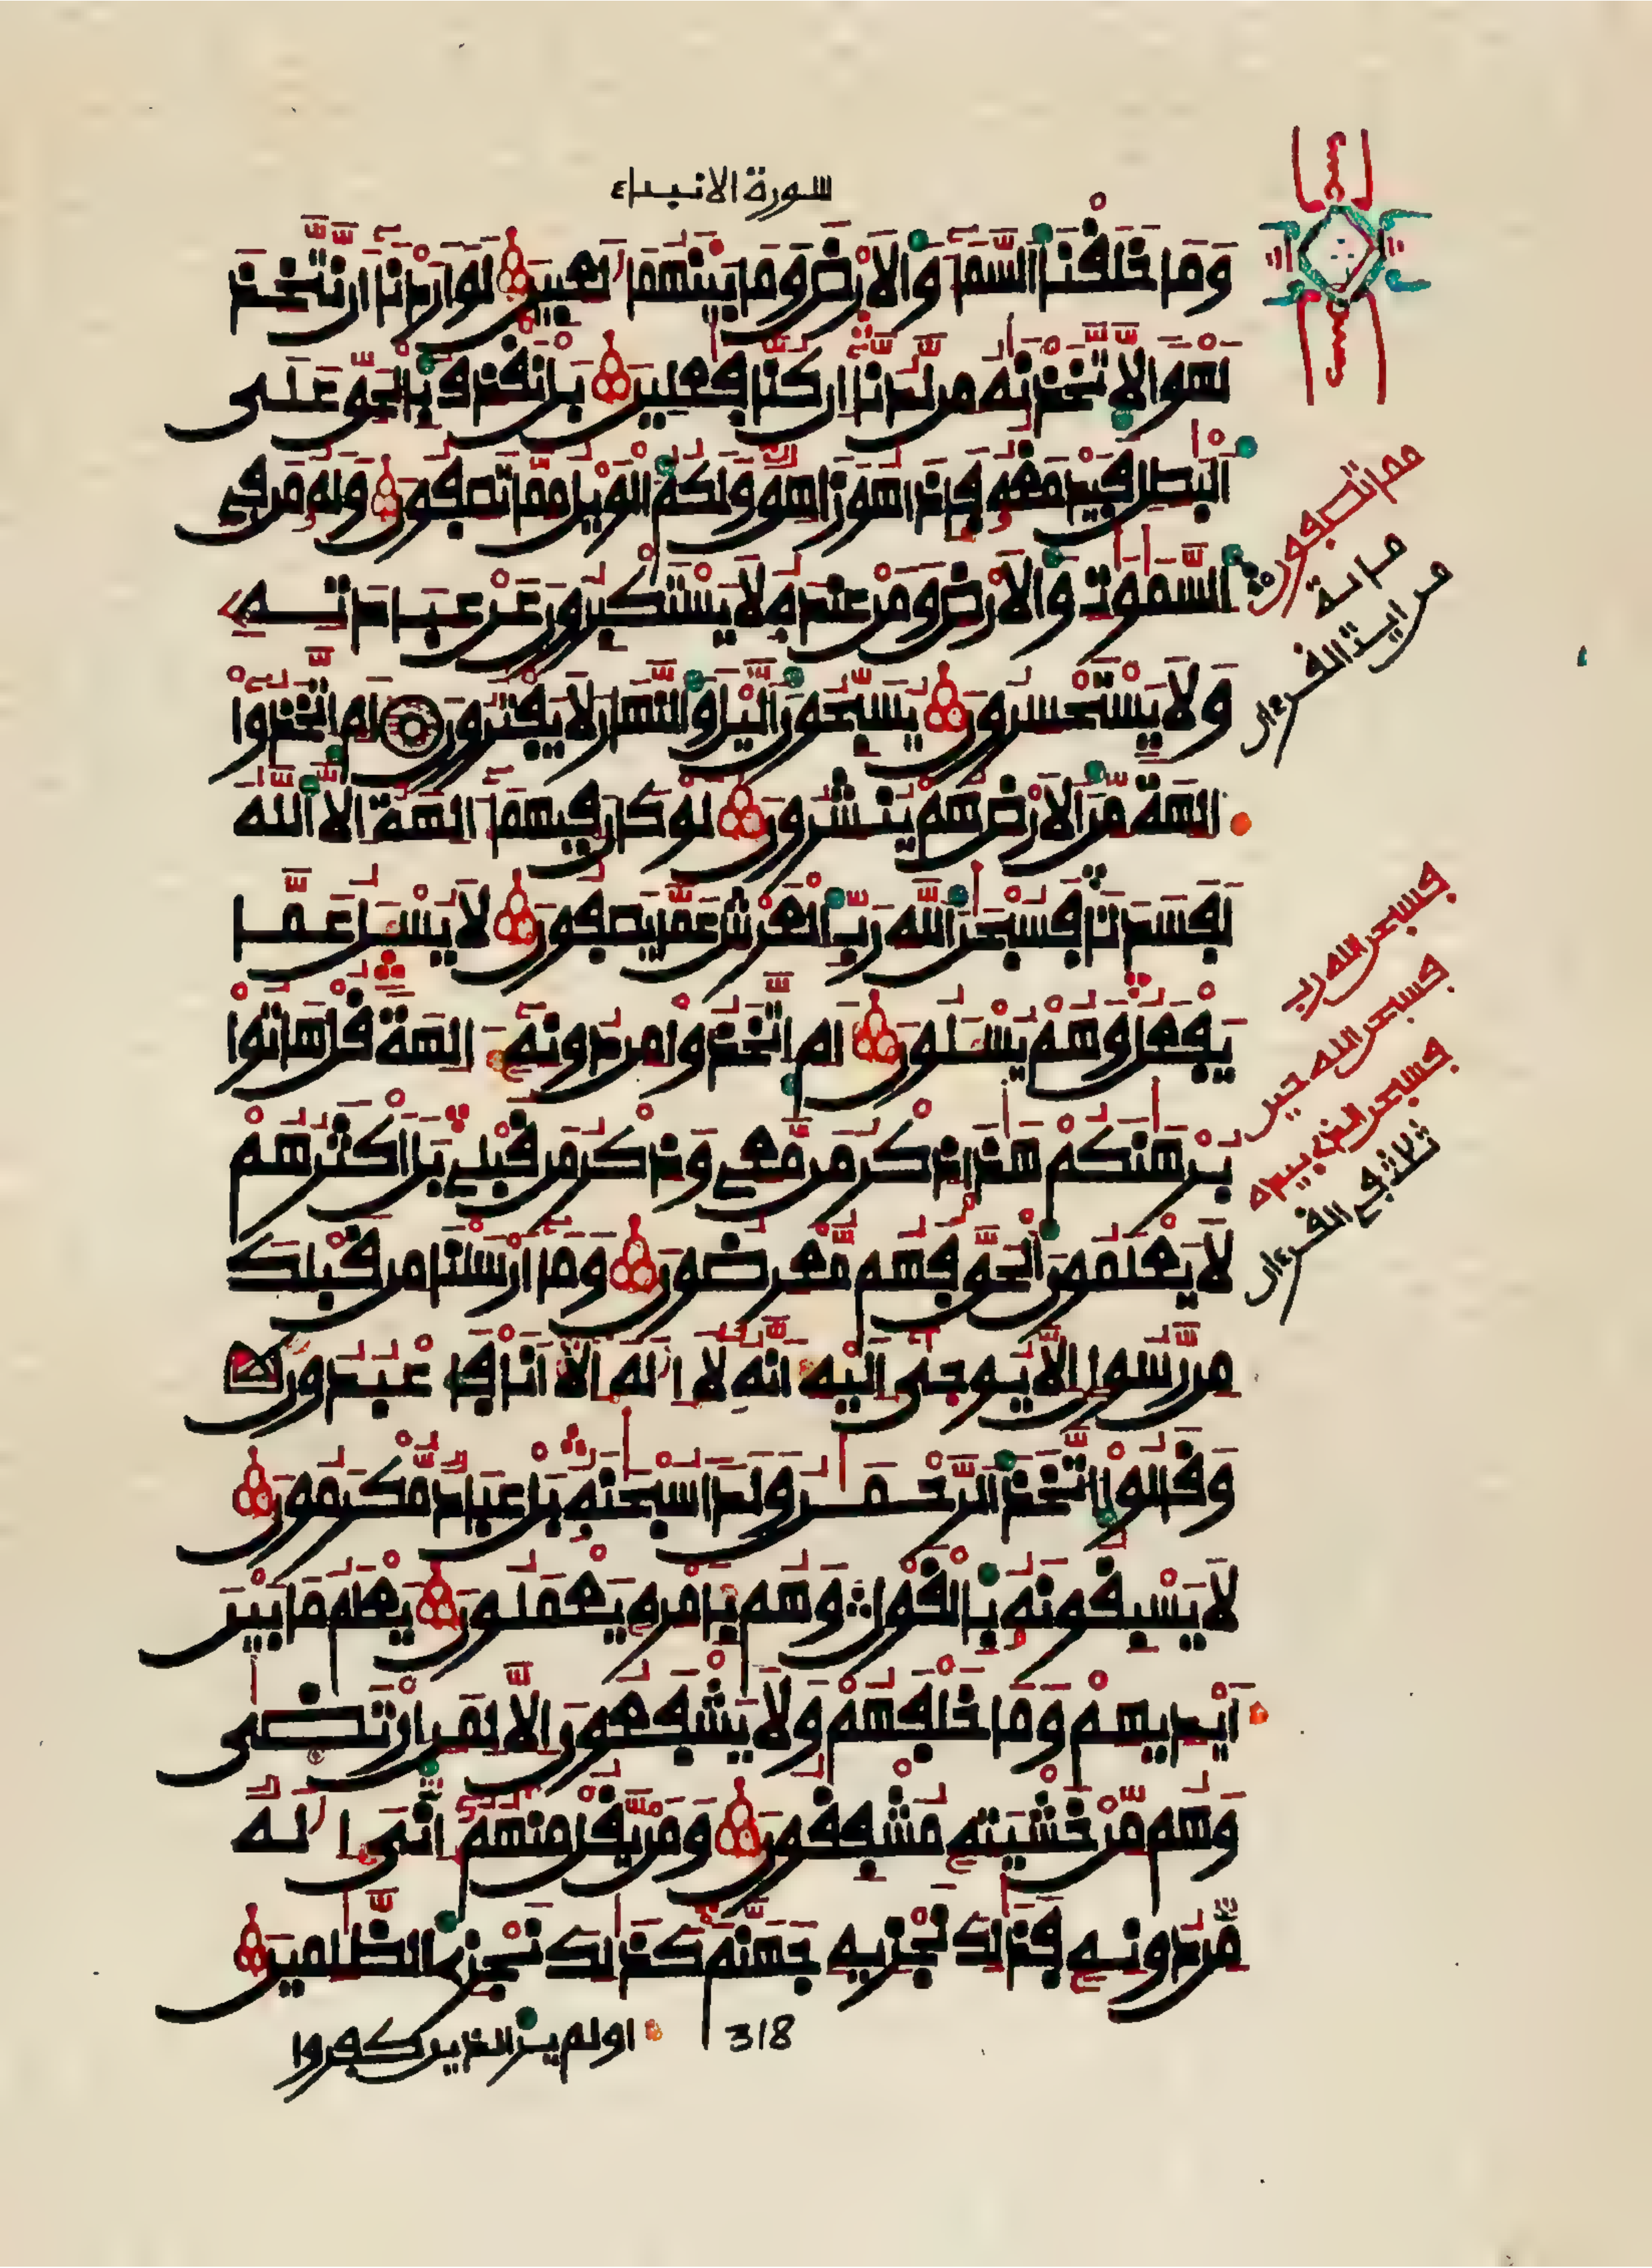 سورة الانبياء
وَمَا خَلَقْنَا السَّمَآءَ وَالَارْضَ وَمَا بَيْنَهُمَا لَعِبِينَ لَوَ ارَدْنَآ أَن نَّتَّخِذَ
لَهْوًا لَّاتَّخَذْنَهُ مِن لَّدُنَّآ إِن كُنَّا فَعِلِينَ بَلْ نَقْذِفُ بِالْحَقِّ عَلَى
الْبَطِلِ فَيَدْمَغُهُ فَإِذَا هُوَ زَاهِقٌ وَلَكُمُ الْوَيْلُ مِمَّا تَصِفُونَ وَلَهُ مَن فِي
السَّمَوَتِ وَالَارْضِ وَمَنْ عِندَهُ لَا يَسْتَكْبِرُونَ عَنْ عِبَادَتِهِ
وَلَا يَسْتَحْسِرُونَ يُسَبِّحُونَ الَّيْلَ وَالنَّهَارَ لَا يَفْتُرُونَ أَمِ اتَّخَذُوٓا
ءَالِهَةً مِّنَ الَارْضِ هُمْ يُنشِرُونَ لَوْ كَانَ فِيهِمَآ ءَالِهَةٌ اِلَّا اللَّهُ
لَفَسَدَتَا فَسُبْحَنَ اللَّهِ رَبِّ الْعَرْشِ عَمَّا يَصِفُونَ لَا يُسْـَٔلُ عَمَّا
يَفْعَلُ وَهُمْ يُسْـَٔلُونَ أَمِ اتَّخَذُوا مِن دُونِهِ ءَالِهَةً قُلْ هَاتُوا
بُرْهَنَكُمْ هَذَا ذِكْرُ مَن مَّعِي وَذِكْرُ مَن قَبْلِي بَلَ اكْثَرُهُمْ
لَا يَعْلَمُونَ الْحَقَّ فَهُم مُّعْرِضُونَ وَمَآ أَرْسَلْنَا مِن قَبْلِكَ
مِن رَّسُولٍ اِلَّا يُوحَىٓ إِلَيْهِ أَنَّهُ لَآ إِلَهَ إِلَّآ أَنَا فَاعْبُدُونِ
وَقَالُوا اتَّخَذَ الرَّحْمَنُ وَلَدًا سُبْحَنَهُ بَلْ عِبَادٌ مُّكْرَمُونَ
لَا يَسْبِقُونَهُ بِالْقَوْلِ وَهُم بِأَمْرِهِ يَعْمَلُونَ يَعْلَمُ مَا بَيْنَ
أَيْدِيهِمْ وَمَا خَلْفَهُمْ وَلَا يَشْفَعُونَ إِلَّا لِمَنِ ارْتَضَى
وَهُم مِّنْ خَشْيَتِهِ مُشْفِقُونَ وَمَن يَقُلْ مِنْهُمُ إِنِّيَ إِلَهٌ
مِّن دُونِهِ فَذَلِكَ نَجْزِيهِ جَهَنَّمَ كَذَلِكَ نَجْزِي الظَّلِمِينَ
318
اولم ير الذين كفروا
مما تصفون
من اية القرءان
فسبحن الله رب
فسبحن الله حين
فسبحن الذي بيده
ثلاث في القرءان